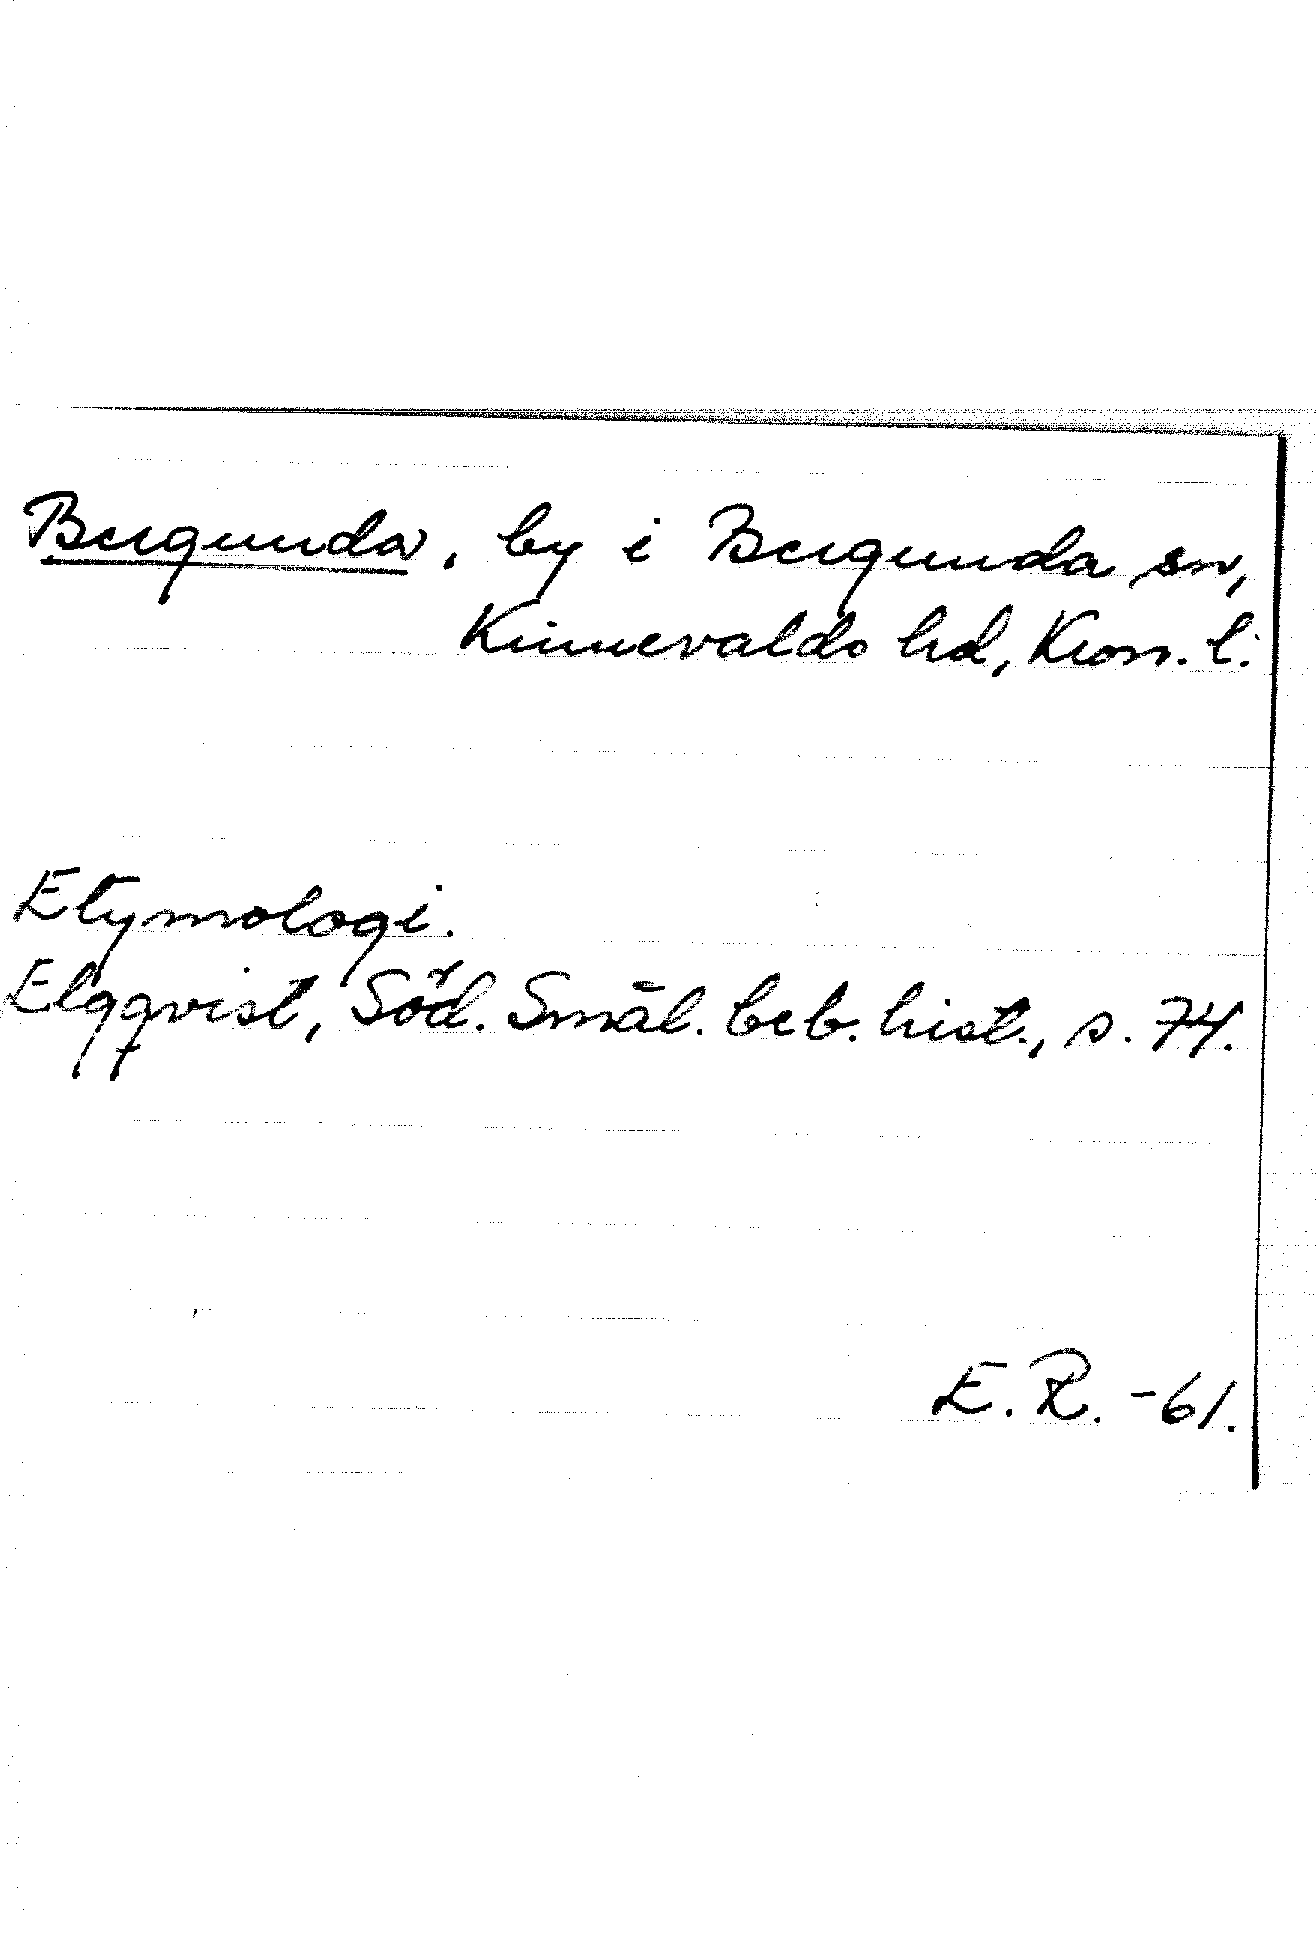 Bergunda, by i Bergunda sn,
Kinnevalds hd, Kron. l.
Etymologi.
Elgqvist, Söd. Smål. beb. hist., s. 74.
E. R. -61.